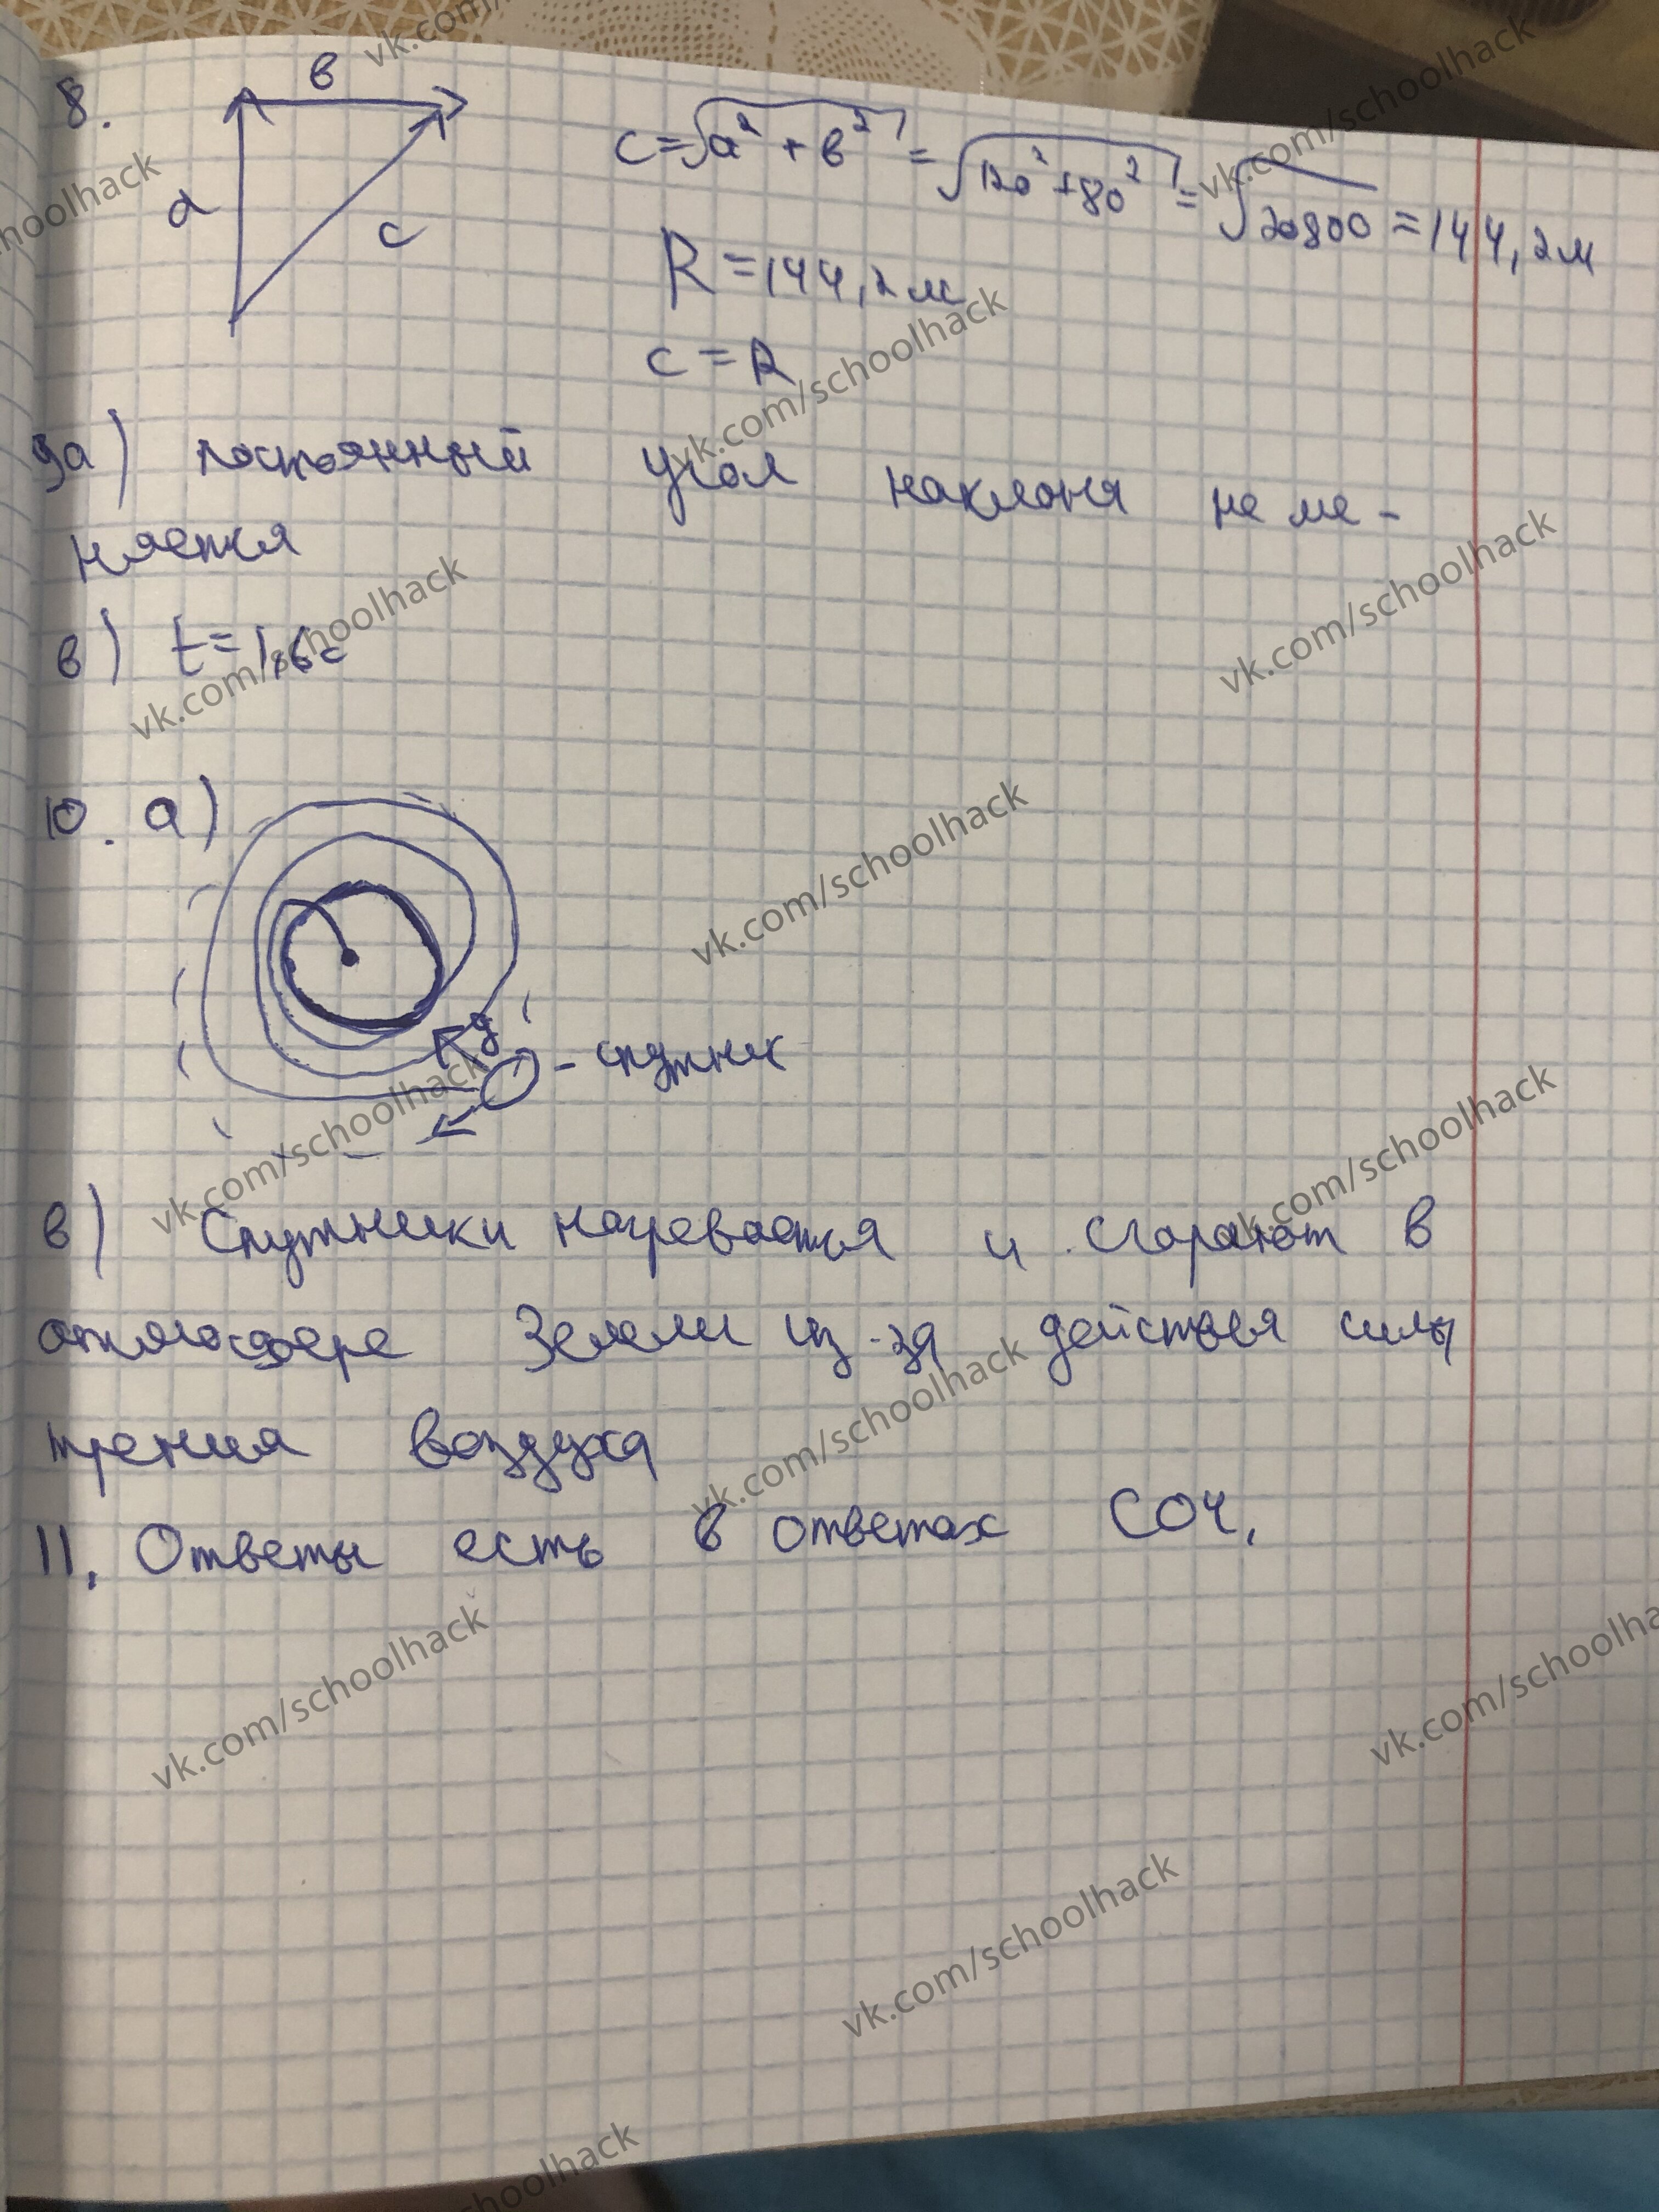 8.
в
a
c
c=√a²+в² = √120²+80² = √20800 = 144,2м
R = 144,2 м
c = R
9а) постоянный угол наклоня не ме-
няется
в) t = 1,6с
10. а)
g
- спутник
в) Спутники нагревается и сгорают в
атмосфере Земли из-за действия силы
трения воздуха
11. Ответы есть в ответах СОЧ.
vk.com/schoolhack
vk.com/schoolhack
vk.com/schoolhack
vk.com/schoolhack
vk.com/schoolhack
vk.com/schoolhack
vk.com/schoolhack
vk.com/schoolhack
vk.com/schoolhack
vk.com/schoolhack
vk.com/schoolhack
vk.com/schoolhack
vk.com/schoolhack